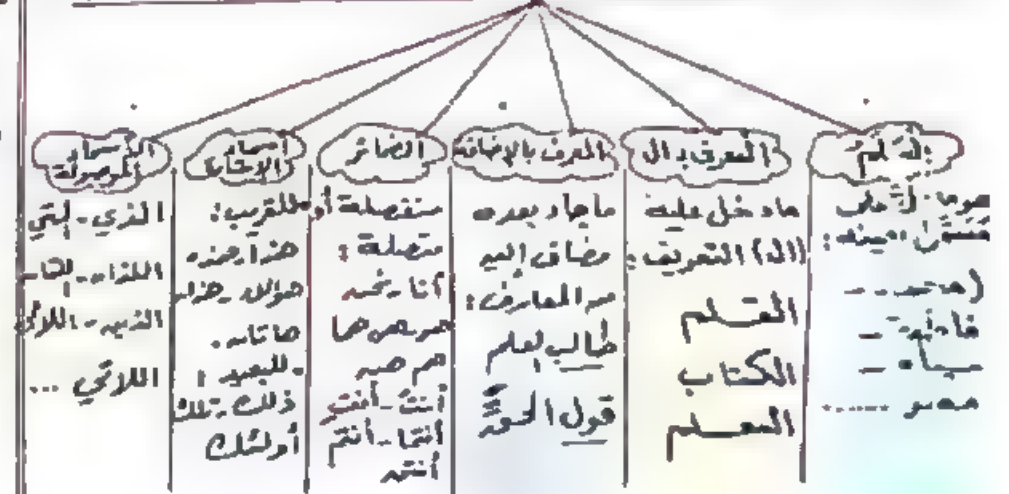 العلم
(محمد -
فاطمة -
مصر .....
المعرف بـ ال
ما دخل عليه
(ال) التعريف:
القلم
الكتاب
المعلم
المعرف بالإضافة
ما جاء بعده
مضاف إليه
من المعارف:
طالب العلم
قول الحق
الضمائر
منفصلة أو
متصلة:
أنا - نحن
هو - هي - هما
هم - هن
أنت - أنتِ
أنتما - أنتم
أنتن
أسماء
الإشارة
للقريب:
هذا - هذه
هؤلاء - هذان
هاتان.
للبعيد:
ذلك - تلك
أولئك
الأسماء
الموصولة
الذي - التي
اللذان - اللتان
الذين - اللائي
اللاتي ...